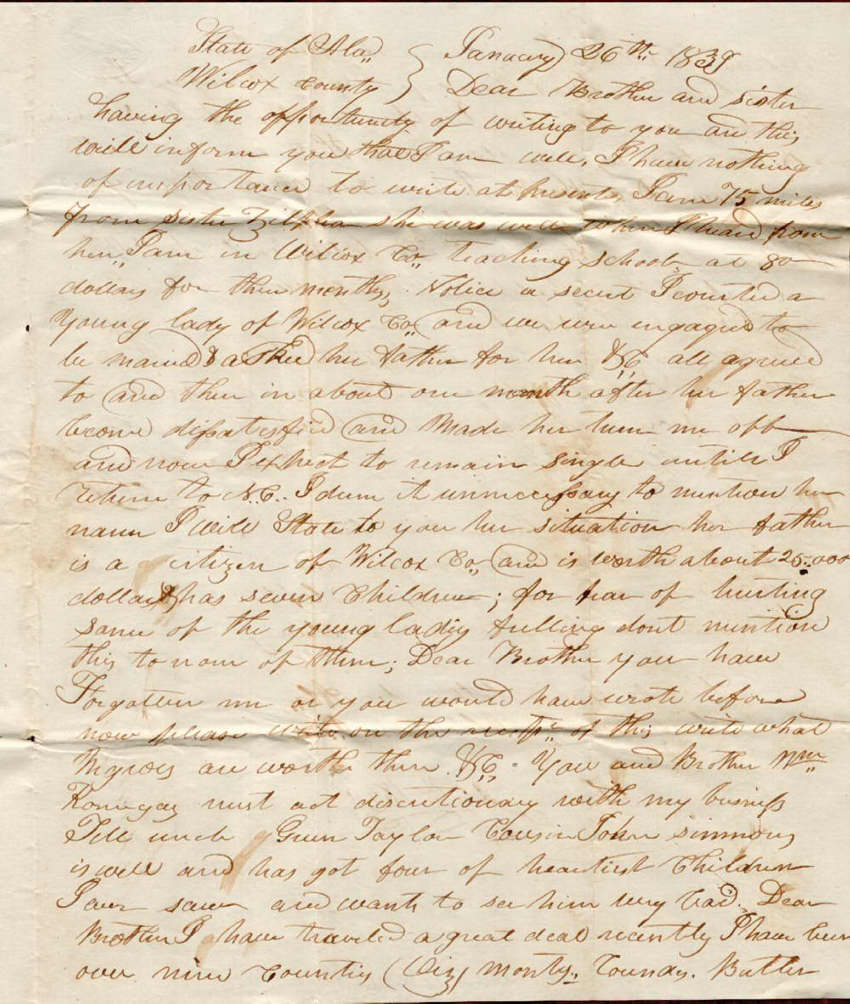 State of Ala,, } January 26th 1839
Wilcox County } Dear Brother and sister
having the opportunity of writing to you and this
will inform you that I am well, I have nothing
of importance to write at presents, I am 75 miles
from sister Zilphia she was well when I heard from
her,, I am in Wilcox Co,, teaching school, at 80
dollars for three months, Notice a secret I courted a
young lady of Wilcox Co, and we were engaged to
be maried & asked her father for her &C all agreed
to and then in about one month after her father
become dissatisfied and made her turn me off
and now I expect to remain single untill I
return to N.C. I deem it unnecessary to mention her
name I will State to you her situation her father
is a citizen of Wilcox Co,, and is worth about 25.000
dollars & has seven Children; for fear of hurting
same of the young ladies feelling dont mention
this to none of them; Dear Brother you have
Forgotten me or you would have wrote before
now please write on the of this write what
Negroes are worth there &C. You and Brother Wm,,
Kornegay must act discretionary with my business
Tell uncle Green Taylor Cousin John simmons
is well and has got four of heartiest Children
I ever saw and wants to see him very bad. Dear
Brother I have traveled a great deal recently I have been
over nine Counties (Viz) Monty,, Butler